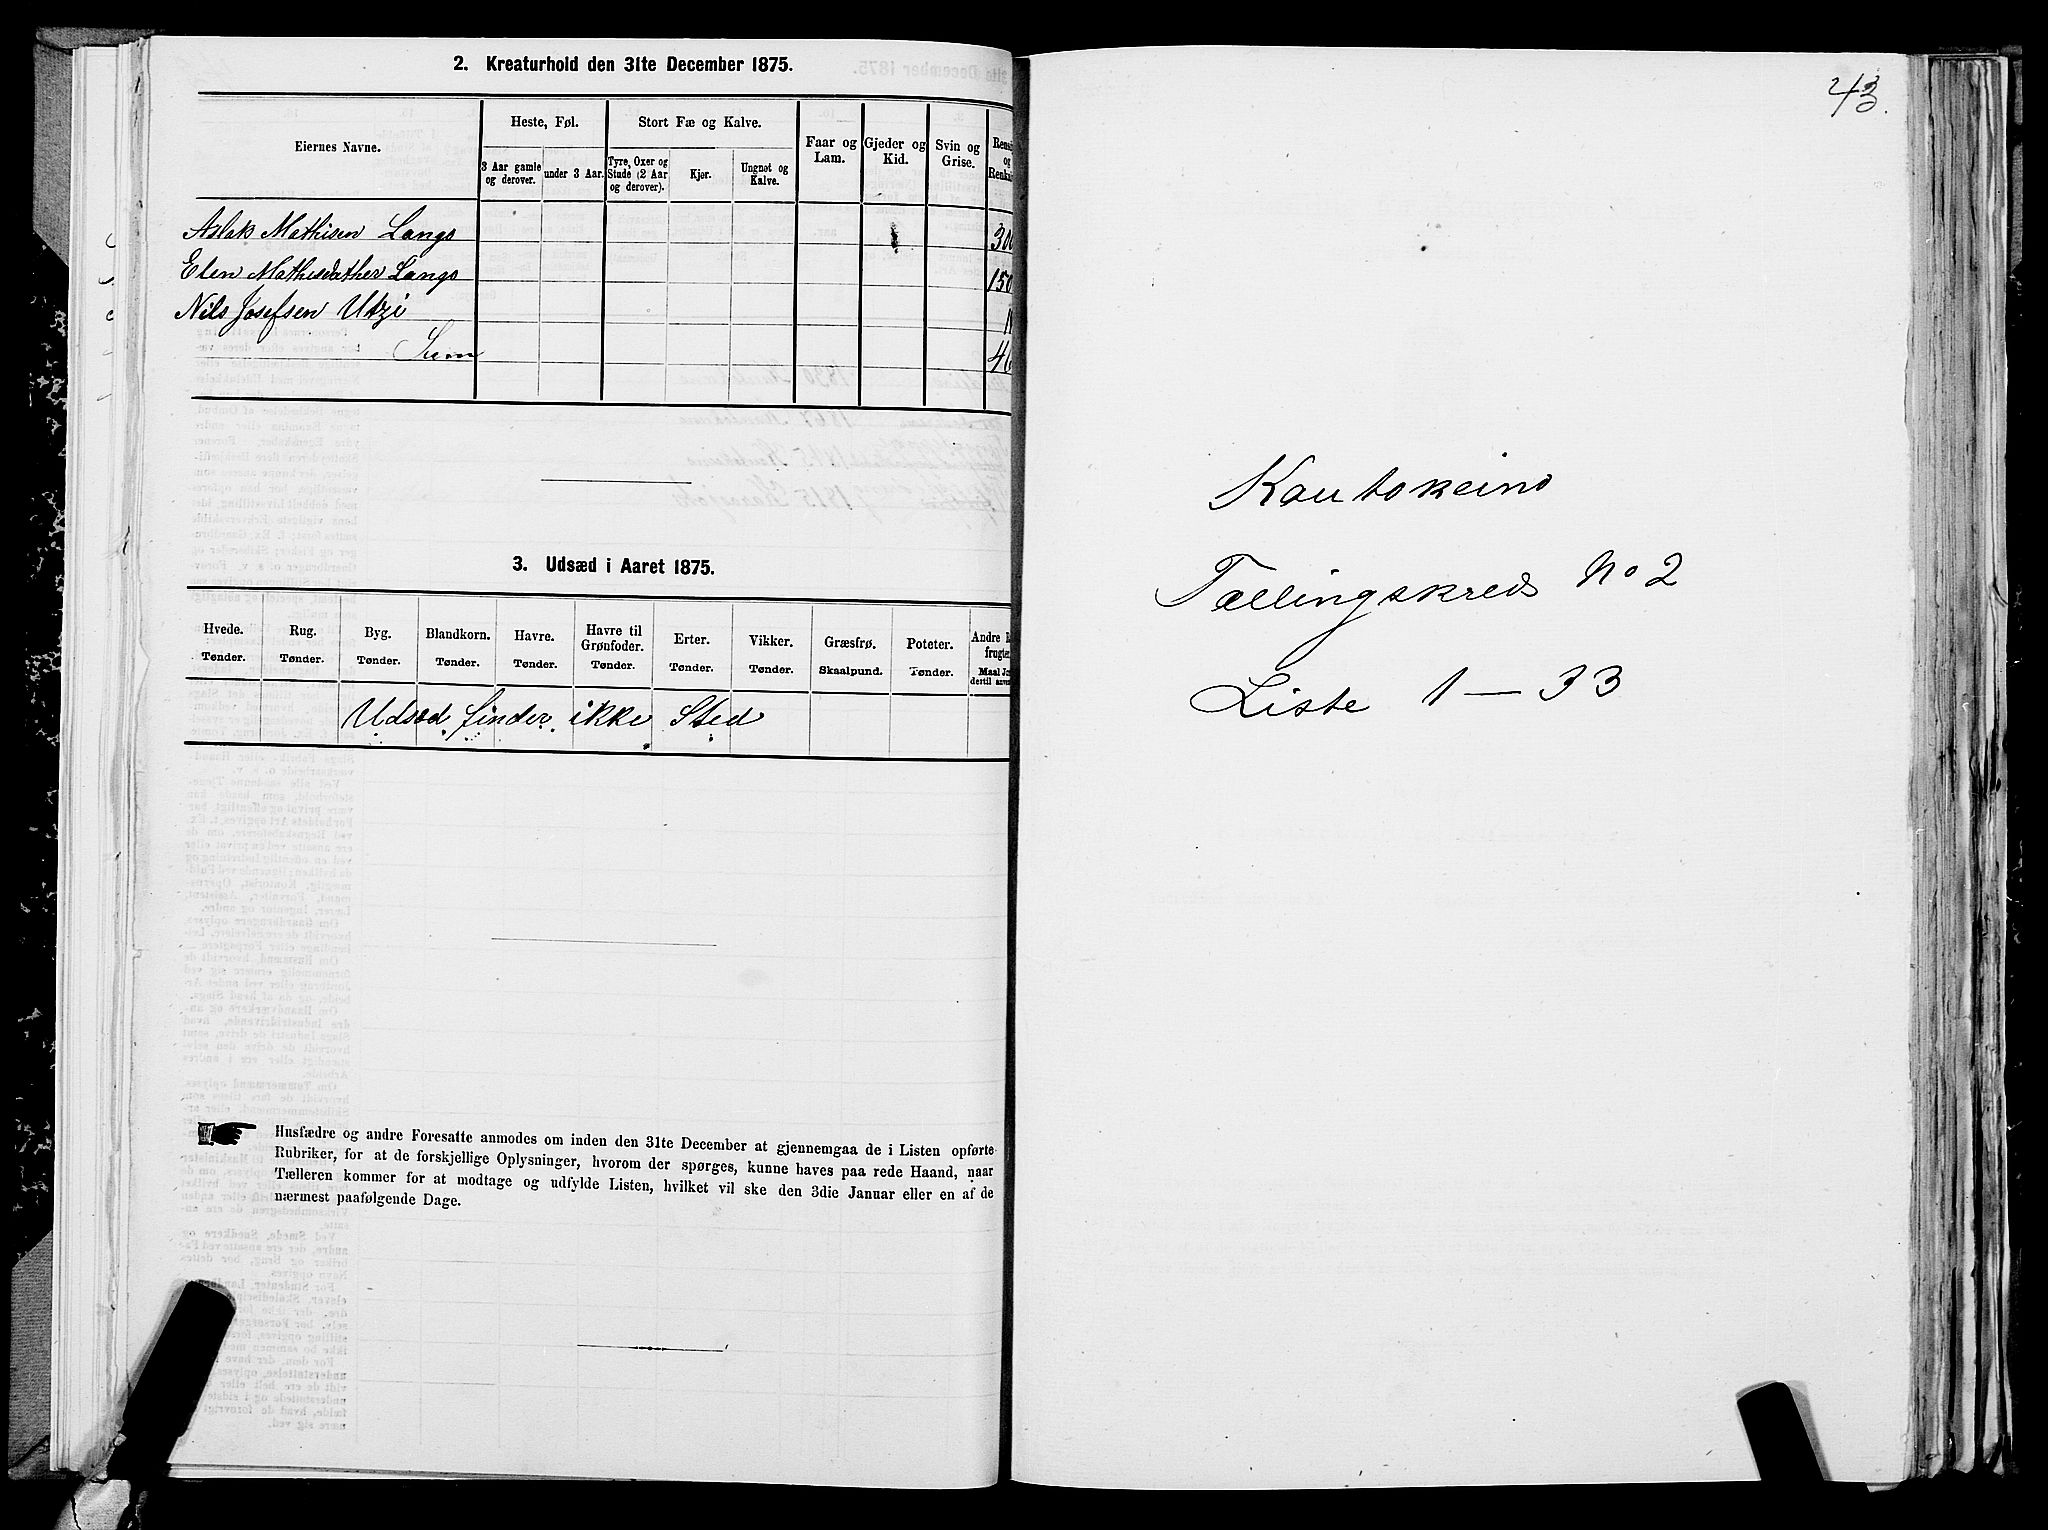 2. Kreaturhold den 31te December 1875.
Eiernes Navne.
Heste, Føl.
Stort Fæ og Kalve.
Faar og Lam.
Gjeder og Kid.
Svin og Grise.
3 Aar gamle og derover.
under 3 Aar.
Tyre, Oxer og Stude (2 Aar og derover).
Kjør.
Ungnøt og Kalve.
Aslak Mathisen Langs
Elen Mathisdather Langs 150
Nils Josefsen Utzi
Sum
3. Udsæd i Aaret 1875.
Hvede. Rug. Byg. Blandkorn. Havre. Havre til Grønfoder. Erter. Vikker. Græsfrø. Poteter. Andre
Tønder. Tønder. Tønder. Tønder. Tønder. Tønder. Tønder. Tønder. Skaalpund. Tønder. Maal
Udsæd finder ikke Sted
Husfædre og andre Foresatte anmodes om inden den 31te December at gjennemgaa de i Listen opførte
Rubriker, for at de forskjellige Oplysninger, hvorom der spørges, kunne haves paa rede Haand, naar
Tælleren kommer for at modtage og udfylde Listen, hvilket vil ske den 3die Januar eller en af de
nærmest paafølgende Dage.
43.
Kautokeino
Tællingskreds No 2
Liste 1 — 33